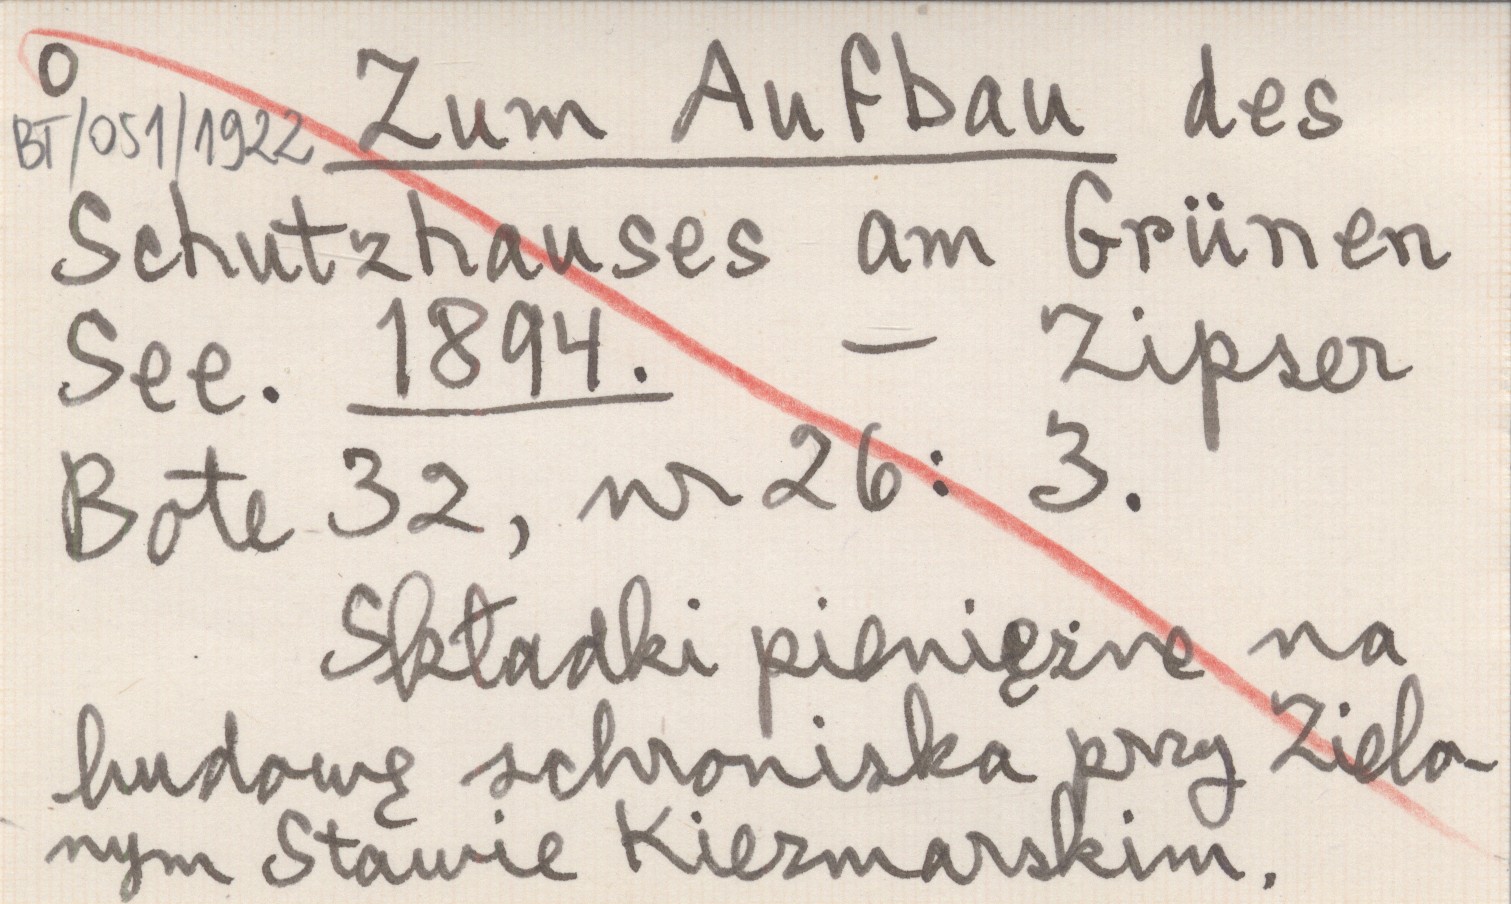 O
BT/051/1922 Zum Aufbau des
Schutzhauses am Grünen
See. 1894. – Zipser
Bote 32, nr 26: 3.
Składki pieniężne na
budowę schroniska przy Zielo-
nym Stawie Kiezmarskim.